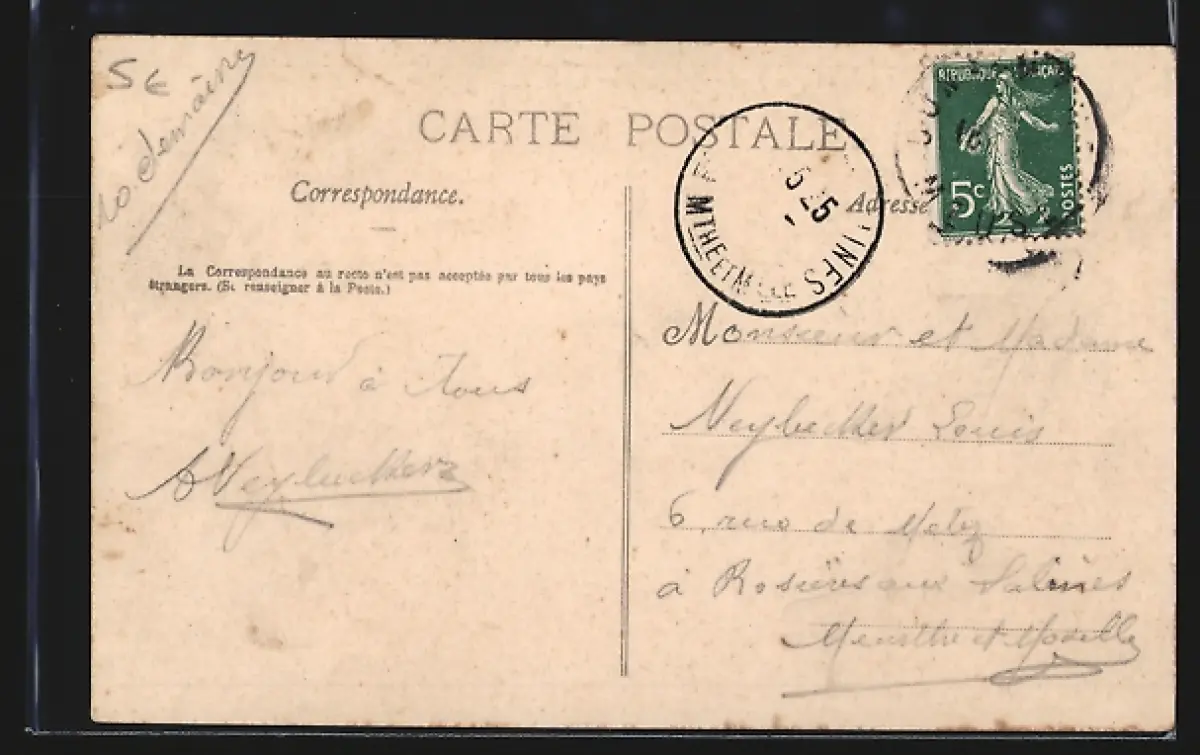 5 €
10. demaine
CARTE POSTALE
Correspondance.
Adresse
La Correspondance au recto n'est pas acceptée par tous les pays
étrangers. (Se renseigner à la Poste.)
REPUBLIQUE FRANÇAISE
5c
POSTES
5-25
MTHE ET MLLE
INES
Bonjour à Tous
Monsieur et Madame
Louis
6, rue de Metz
à Rosières aux Salines
Meurthe et Moselle